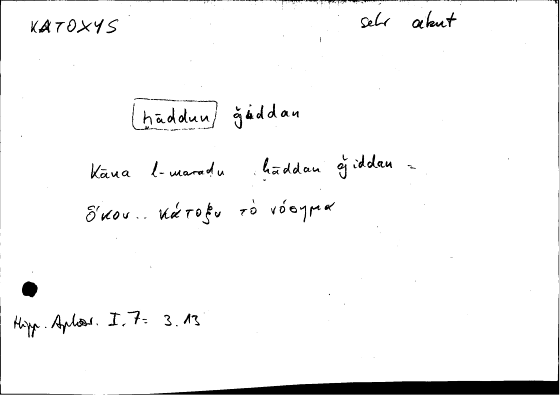 ΚΑΤΟΧΥS sehr akut
ḥāddun ǧiddan
Kāna l-maraḍu ḥāddan ǧiddan =
ὅκου.. κάτοξυ τὸ νόσημα
Hipp. Aphor. I.7= 3.13